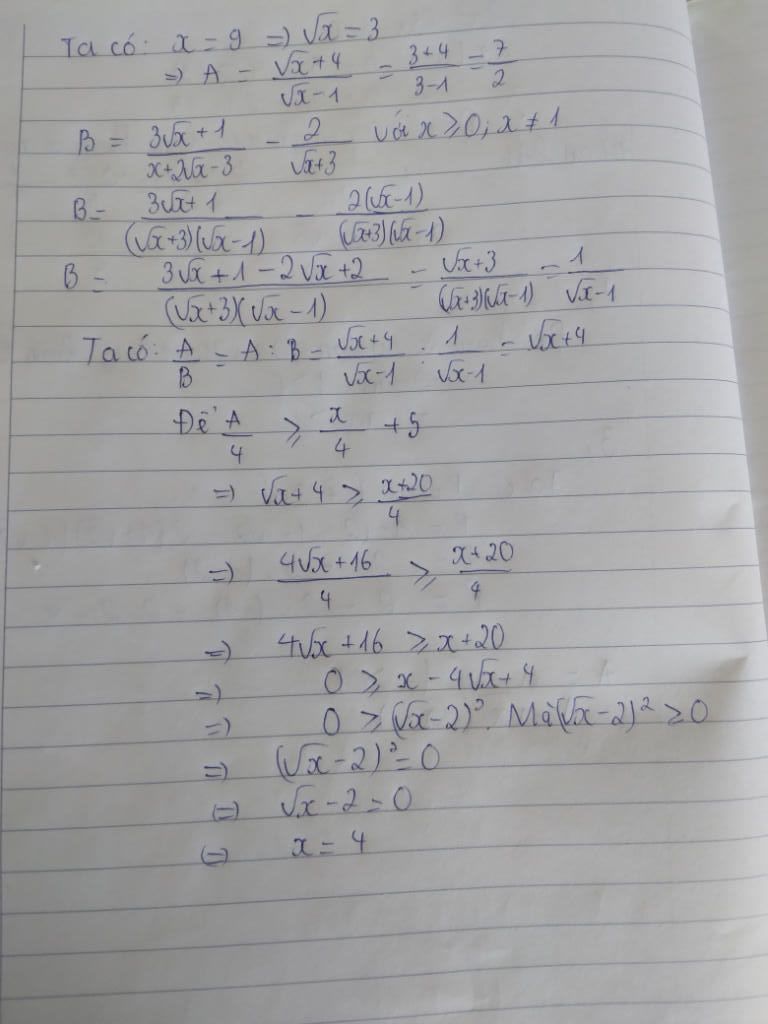 Ta có: x = 9 => √x = 3
=> A = (√x+4)/(√x-1) = (3+4)/(3-1) = 7/2
B = (3√x+1)/(x+2√x-3) - 2/(√x+3) với x ≥ 0; x ≠ 1
B = (3√x+1)/((√x+3)(√x-1)) - (2(√x-1))/((√x+3)(√x-1))
B = (3√x+1-2√x+2)/((√x+3)(√x-1)) = (√x+3)/((√x+3)(√x-1)) = 1/(√x-1)
Ta có: A/B = A : B = (√x+4)/(√x-1) : 1/(√x-1) = √x+4
Để A/4 ≥ x/4 + 5
=> √x+4 ≥ (x+20)/4
=> (4√x+16)/4 ≥ (x+20)/4
=> 4√x+16 ≥ x+20
=> 0 ≥ x-4√x+4
=> 0 ≥ (√x-2)². Mà (√x-2)² ≥ 0
=> (√x-2)² = 0
(=) √x-2 = 0
(=) x = 4